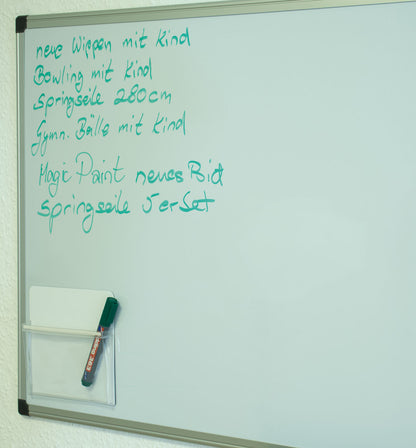 neue Wippen mit Kind
Bowling mit Kind
Springseile 280cm
Gymn. Bälle mit Kind
Magic Paint neues Bild
Springseile 5er Set